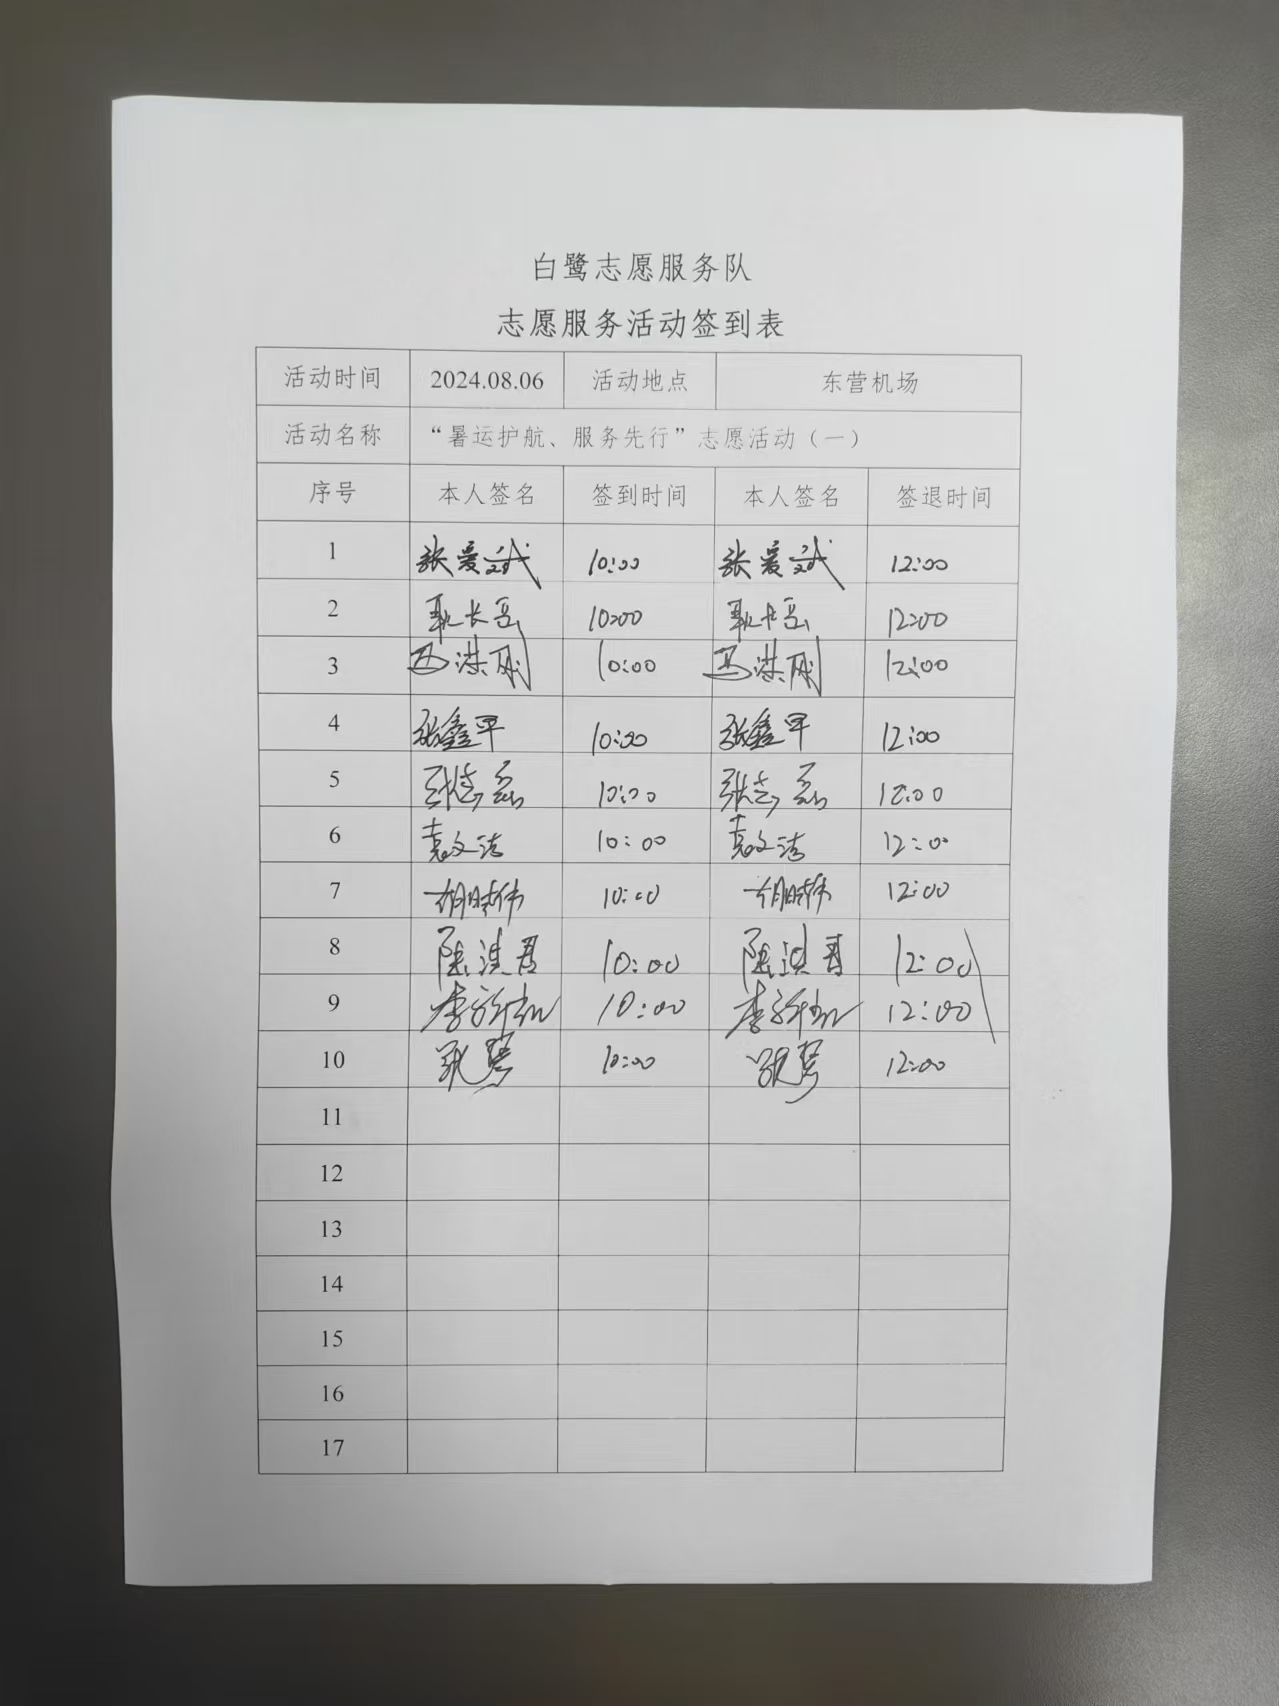 白鹭志愿服务队
志愿服务活动签到表
活动时间 2024.08.06 活动地点 东营机场
活动名称 “暑运护航、服务先行”志愿活动（一）
序号 本人签名 签到时间 本人签名 签退时间
1 张爱斌 10:00 张爱斌 12:00
2 耿长岳 10:00 耿长岳 12:00
3 马洪刚 10:00 马洪刚 12:00
4 张鑫平 10:00 张鑫甲 12:00
5 张志磊 10:00 张志磊 12:00
6 袁文洁 10:00 袁文洁 12:00
7 胡时伟 10:00 胡时伟 12:00
8 陈淇君 10:00 陈淇君 12:00
9 李 10:00 李 12:00
10 张琴 10:00 张琴 12:00
11
12
13
14
15
16
17